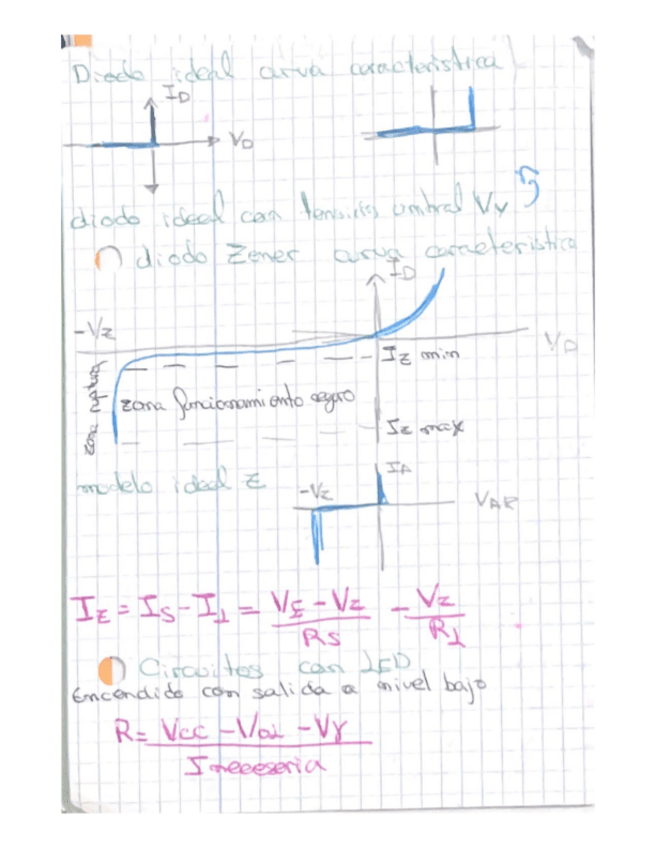 Diodo ideal curva característica
I_D
V_D
diodo ideal con tensión umbral Vγ
diodo Zener curva característica
I_D
-Vz
V_D
Iz min
zona ruptura
zona funcionamiento seguro
Iz max
modelo ideal Z
I_A
-Vz
V_AK
I_Z = I_S - I_L = (V_E - V_Z)/R_S - V_Z/R_L
Circuitos con LED
Encendido con salida a nivel bajo
R = (Vcc - Vol - Vγ)/I necesaria